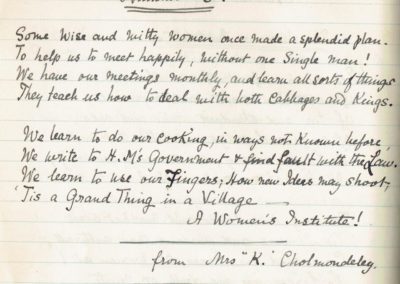 Some Wise and witty women once made a splendid plan.
To help us to meet happily, without one Single man!
We have our meetings monthly, and learn all sorts of things
They teach us how to deal with both Cabbages and Kings.
We learn to do our cooking, in ways not known before,
We write to H.M's Government & find fault with the Law.
We learn to use our Fingers; How new Ideas may shoot,
'Tis a Grand Thing in a Village —
A Women's Institute!
from Mrs "K." Cholmondeley.